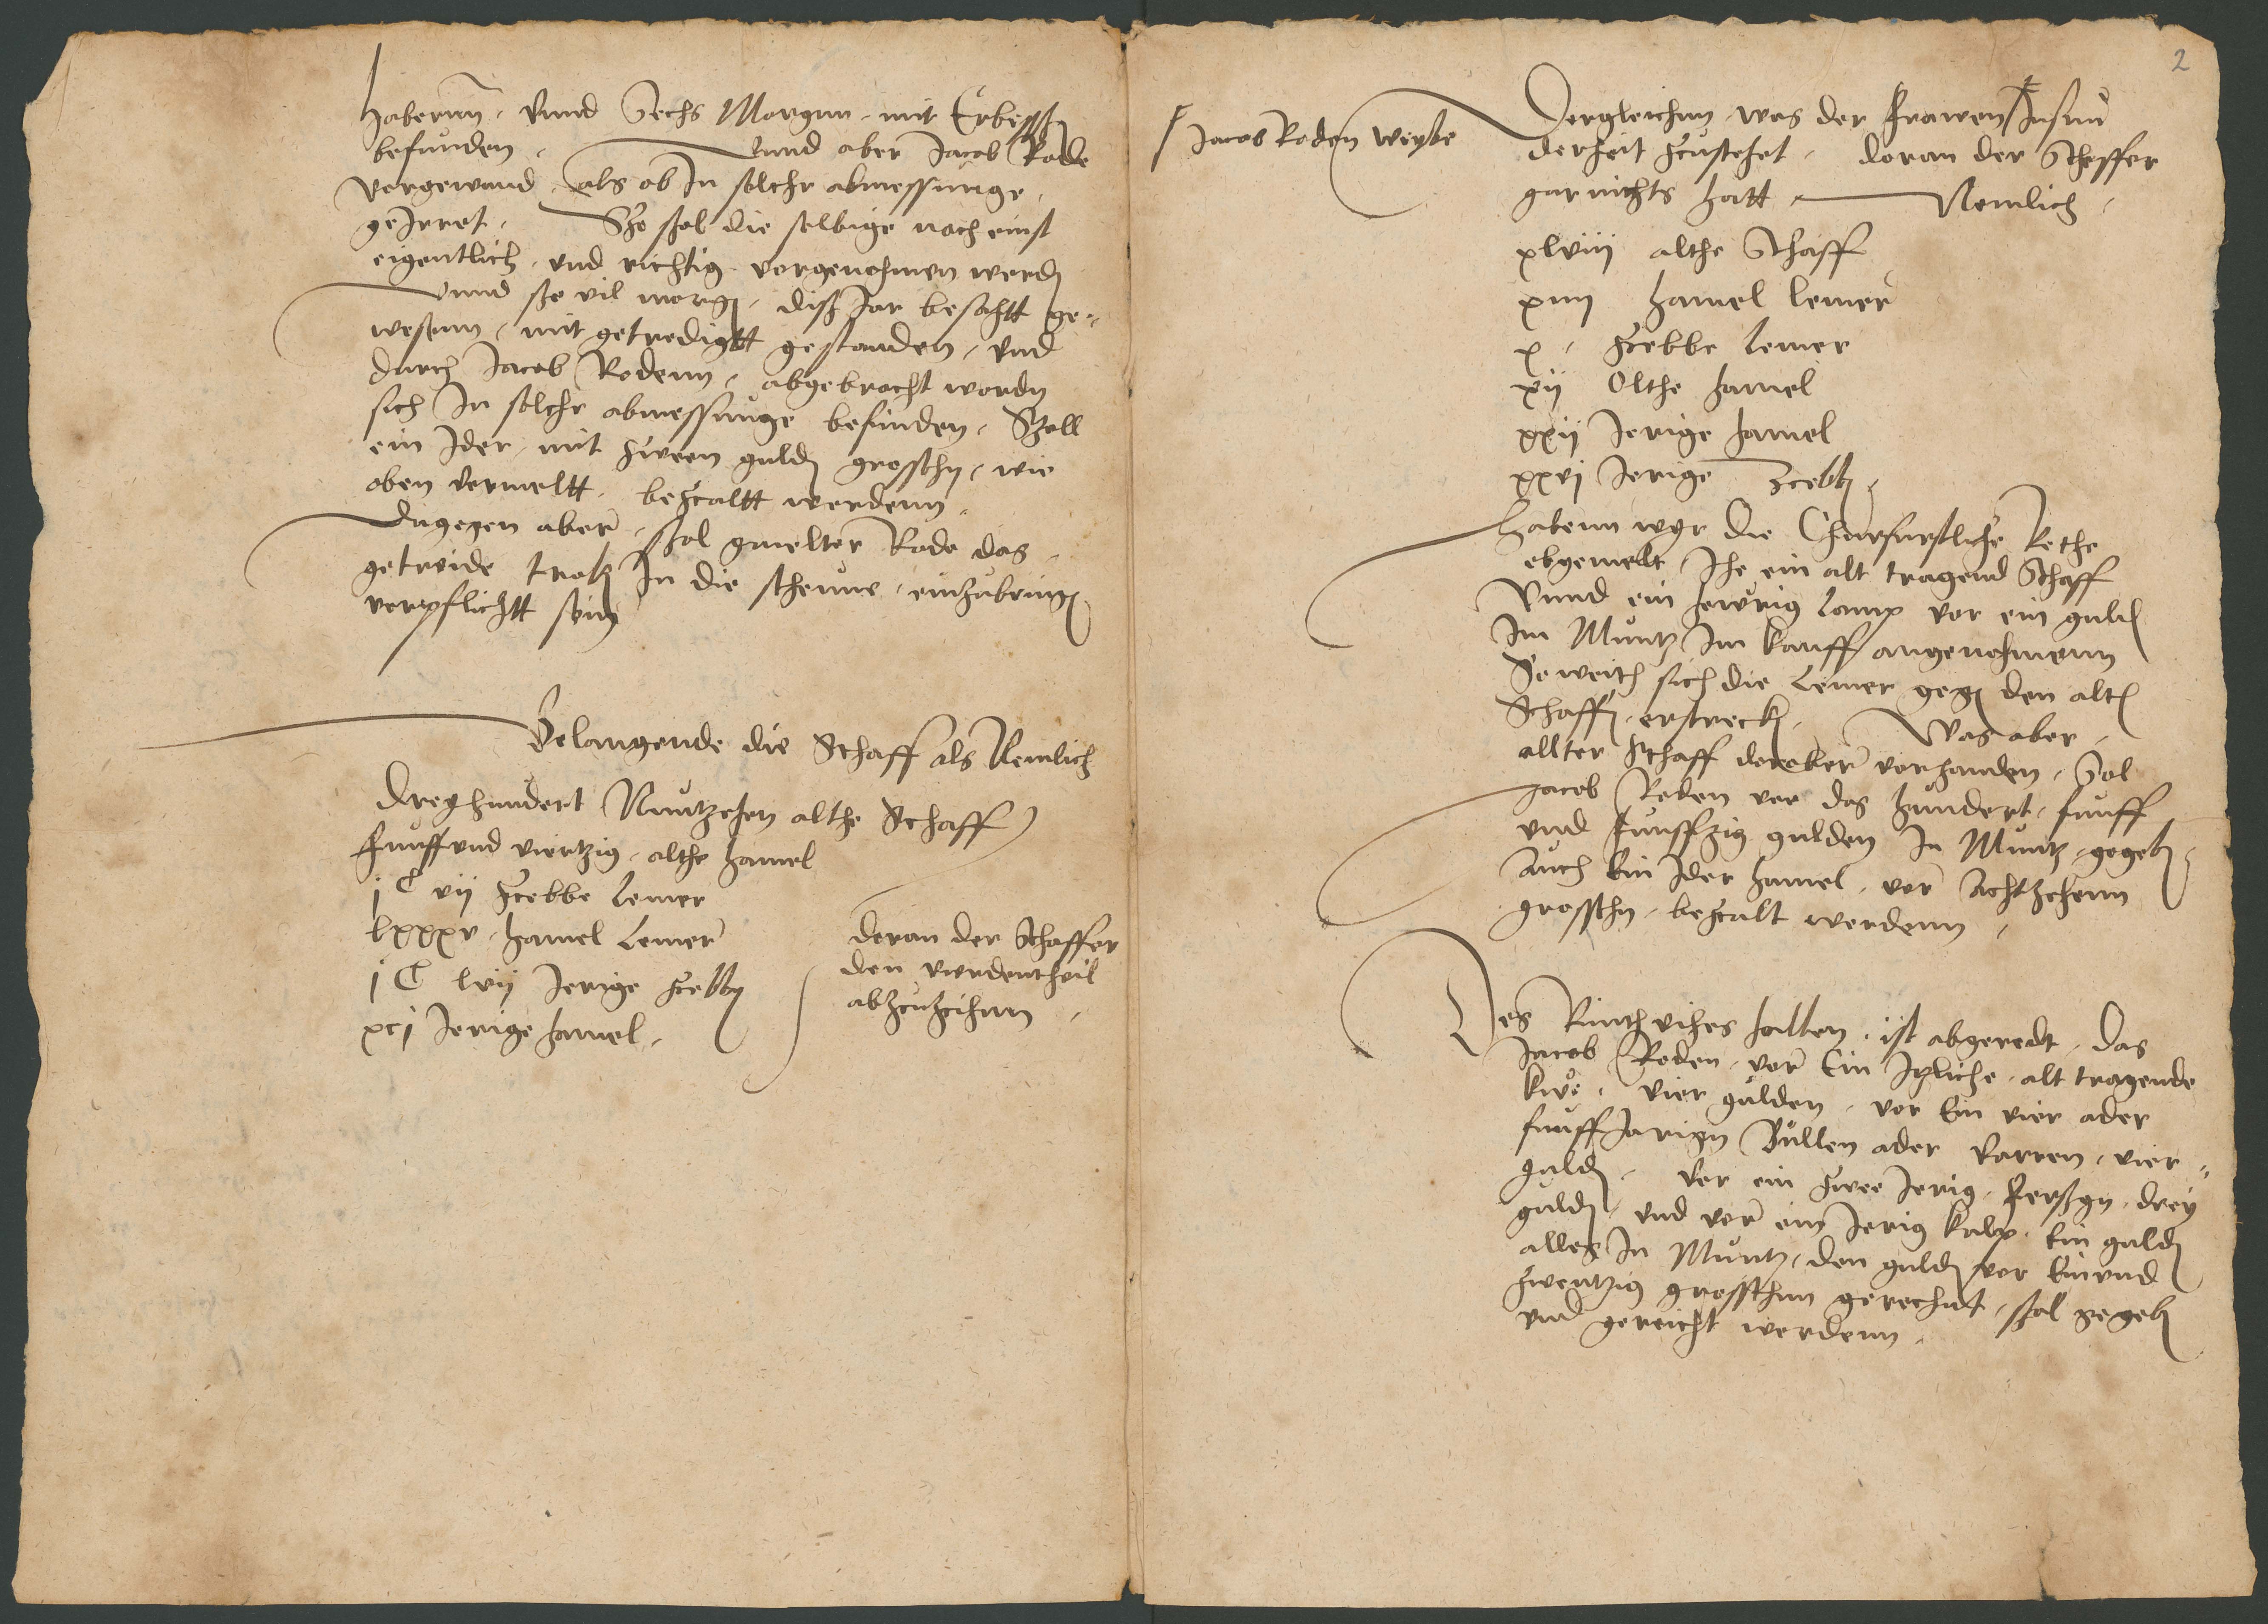 haberenn, Vnnd Sechs Morgenn mit Erbessen
befunden. Vnnd aber Jacob Rode
vorgewand, als ob In solcher abmessunge,
geIrret. Szo szol die selbige noch einst
eigentlich, vnd richtig vorgenohmen werden
Vnnd szo vil morgen, disz Jar besahtt ge-
weszenn, mit getredigtt gestanden, vnd
durch Jacob Rodenn, abgebracht worden
sich In solcher abmessunge befunden, Szoll
ein Ider, mit zween gulden groschen, wie
oben vermeltt, beczaltt werdenn.
Dagegen aber, szol gmelter Rode das
getreide trocken In die scheune, einzubringen
verpflichtt sein
Belangende die Schaff als Nemlich
Dreyhundert Nuntzehen althe Schaff
funff vnd viertzig, althe hamel
j C vij Zcebbe Lemer
lxxxv, hamel Lemer
j C lvij Jerige zcebben
xcj Jerige hamel,
doran der Schaffer
den vierdentheil
abzcuzcihenn,
2
Jacob Roden Weybe
Dergleichenn was der frawen Insun
derheit zcustehet, doran der Scheffer
gar nichts hatt, Nemlich,
xlviij althe Schaff
xiiij hamel lemer
x, Zcebbe Lemer
xij Olthe hamel
xxij Jerige hamel
xxvj Jerige Zcebben,
Habenn wyr die Churfurstliche Rethe
obgemelt, Ihe ein alt tragend Schaff
Vnnd ein hewrig Lamp vor ein gulden
Im Muntz Im kauff angenohmenn
So weith sich die Lemer gegen den alten
Schaffen, erstrecken, Was aber,
allter Schaff doruber vorhanden, Sol
Jacob Roden vor das hundert, funff
vnd funffzig gulden In Muntz, gegeben,
Auch Ein Ider hamel, vor Achtzehenn
groschen, beczalt werdenn,
Des Rinthvihes halben, ist abgeredt, das
Jacob Roden, vor Ein Itzliche, alt tragende
kwe, vier gulden, vor Ein vier ader
funff Jarigen Bullen ader Varren, vier
gulden, Vor ein zwee Jerig, ferszen, drey
gulden, vnd vor ein Jerig kalp, Ein gulden
alles In Muntz, den gulden vor Ein vnd
zwentzig groschenn gerechnet, szol gegeben
vnd gereicht werdenn,